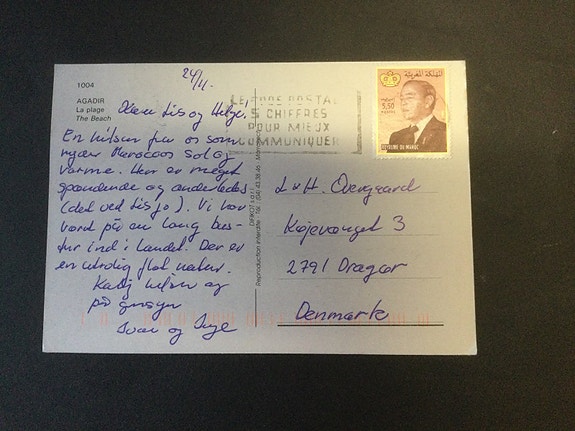 1004
AGADIR
La plage
The Beach
24/11.
Kære Lis og Helge!
En hilsen fra os som
nyder Maroccos sol og
varme. Her er meget
spændende og anderledes
(det ved Lis jo). Vi har
været på en lang bus-
tur ind i landet. Der er
en utrolig flot natur.
Kærlig hilsen og
på gensyn
Svan og Inge
LE CODE POSTAL
5 CHIFFRES
POUR MIEUX
COMMUNIQUER
Reproduction interdite
المملكة المغربية
5,50
ROYAUME DU MAROC
L & H. Overgaard
Køjevænget 3
2791 Dragør
Denmark